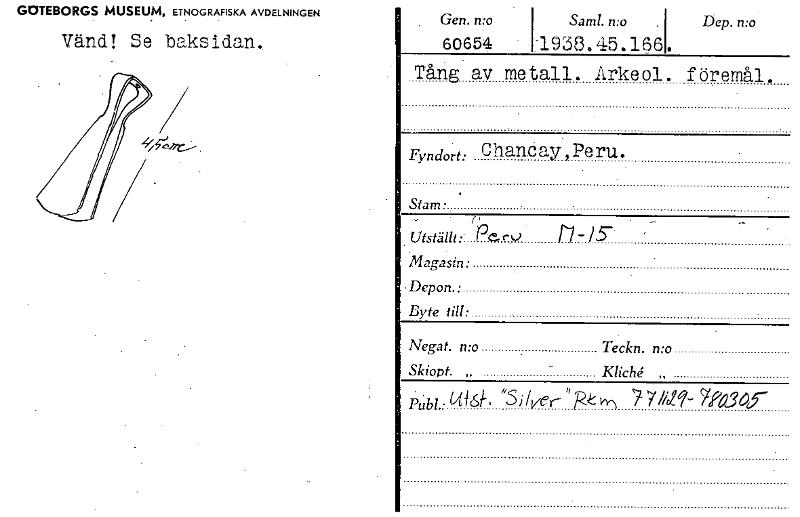 GÖTEBORGS MUSEUM, ETNOGRAFISKA AVDELNINGEN
Vänd! Se baksidan.
4,5cm
Gen. n:o Saml. n:o Dep. n:o
60654 1938.45.166.
Tång av metall. Arkeol. föremål.
Fyndort: Chancay,Peru.
Stam:
Utställt: Peru M-15
Magasin:
Depon.:
Byte till:
Negat. n:o Teckn. n:o
Skiopt. „ Kliché „
Publ.: Utst. "Silver" Rkm 771129-780305